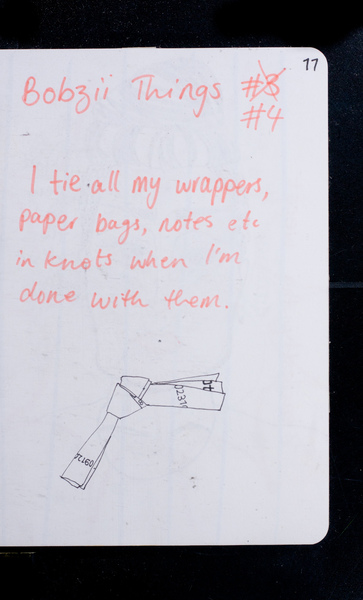 77
Bobzii Things #3
#4
I tie all my wrappers,
paper bags, notes etc
in knots when I'm
done with them.